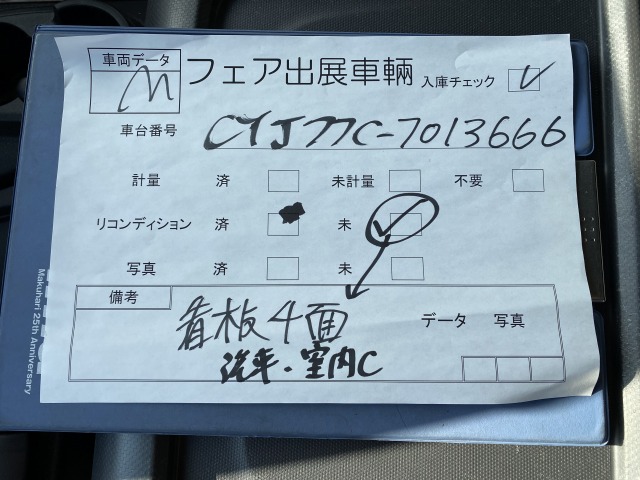 車両データ
M
フェア出展車輌
入庫チェック
車台番号 CYJ77C-7013666
計量 済 未計量 不要
リコンディション 済 未
写真 済 未
備考
看板4面
汽車・室内C
データ 写真
Makuhari 25th Anniversary